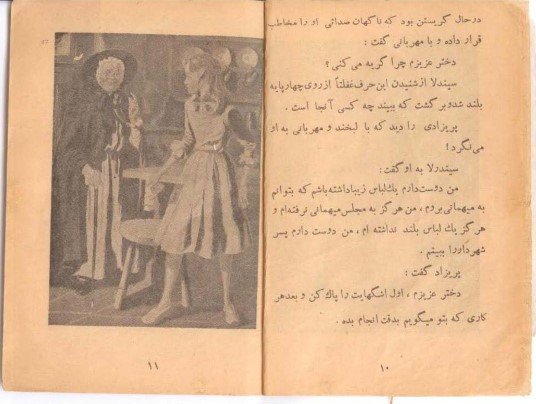 درحال گریستن بود که ناگهان صدائی او را مخاطب
قرار داده و با مهربانی گفت :
دختر عزیزم چرا گریه می کنی ؟
سیندرلا ازشنیدن این حرف غفلتاً ازروی چهارپایه
بلند شدو بر گشت که ببیند چه کسی آنجا است .
پریزادی را دید که با لبخند و مهربانی به او
می‌نگرد !
سیندرلا به او گفت :
من دوست‌دارم یك لباس زیبا داشته باشم که بتوانم
به میهمانی بروم ، من هرگز به مجلس میهمانی نرفته‌ام و
هرگز یك لباس بلند نداشته ام ، من دوست دارم پسر
شهرداررا ببینم .
پریزاد گفت :
دختر عزیزم ، اول اشگهایت را پاك کن و بعدهر
کاری که بتو میگویم بدقت انجام بده .
۱۰
۱۱